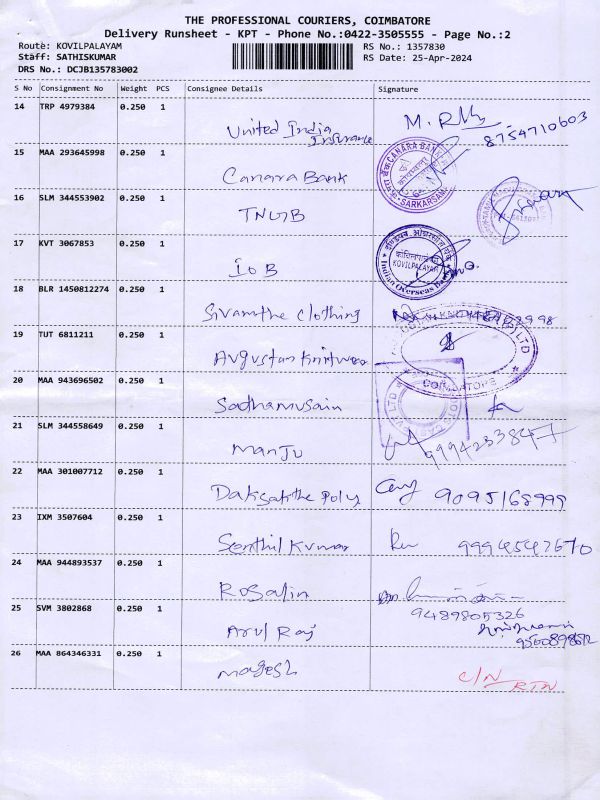 THE PROFESSIONAL COURIERS, COIMBATORE
Delivery Runsheet - KPT - Phone No.:0422-3505555 - Page No.:2
Route: KOVILPALAYAM
RS No.: 1357830
Staff: SATHISKUMAR
RS Date: 25-Apr-2024
DRS No.: DCJB135783002
S No Consignment No Weight PCS Consignee Details Signature
14 TRP 4979384 0.250 1
United India Insurance
M.
8754710603
15 MAA 293645998 0.250 1
Canara Bank
CANARA BANK
SARKARSAM
16 SLM 344553902 0.250 1
17 KVT 3067853 0.250 1
IOB
KOVILPALAYAM
Indian Overseas Bank
18 BLR 1450812274 0.250 1
clothing
19 TUT 6811211 0.250 1
COIMBATORE
20 MAA 943696502 0.250 1
Sadhamusain
21 SLM 344558649 0.250 1
Manju
9994233847
22 MAA 301007712 0.250 1
Poly
9095168999
23 IXM 3507604 0.250 1
Senthil Kumar
9994547670
24 MAA 944893537 0.250 1
Rosalin
9489805326
25 SVM 3802868 0.250 1
Arul Raj
26 MAA 864346331 0.250 1
Magesh
C/N
RTN